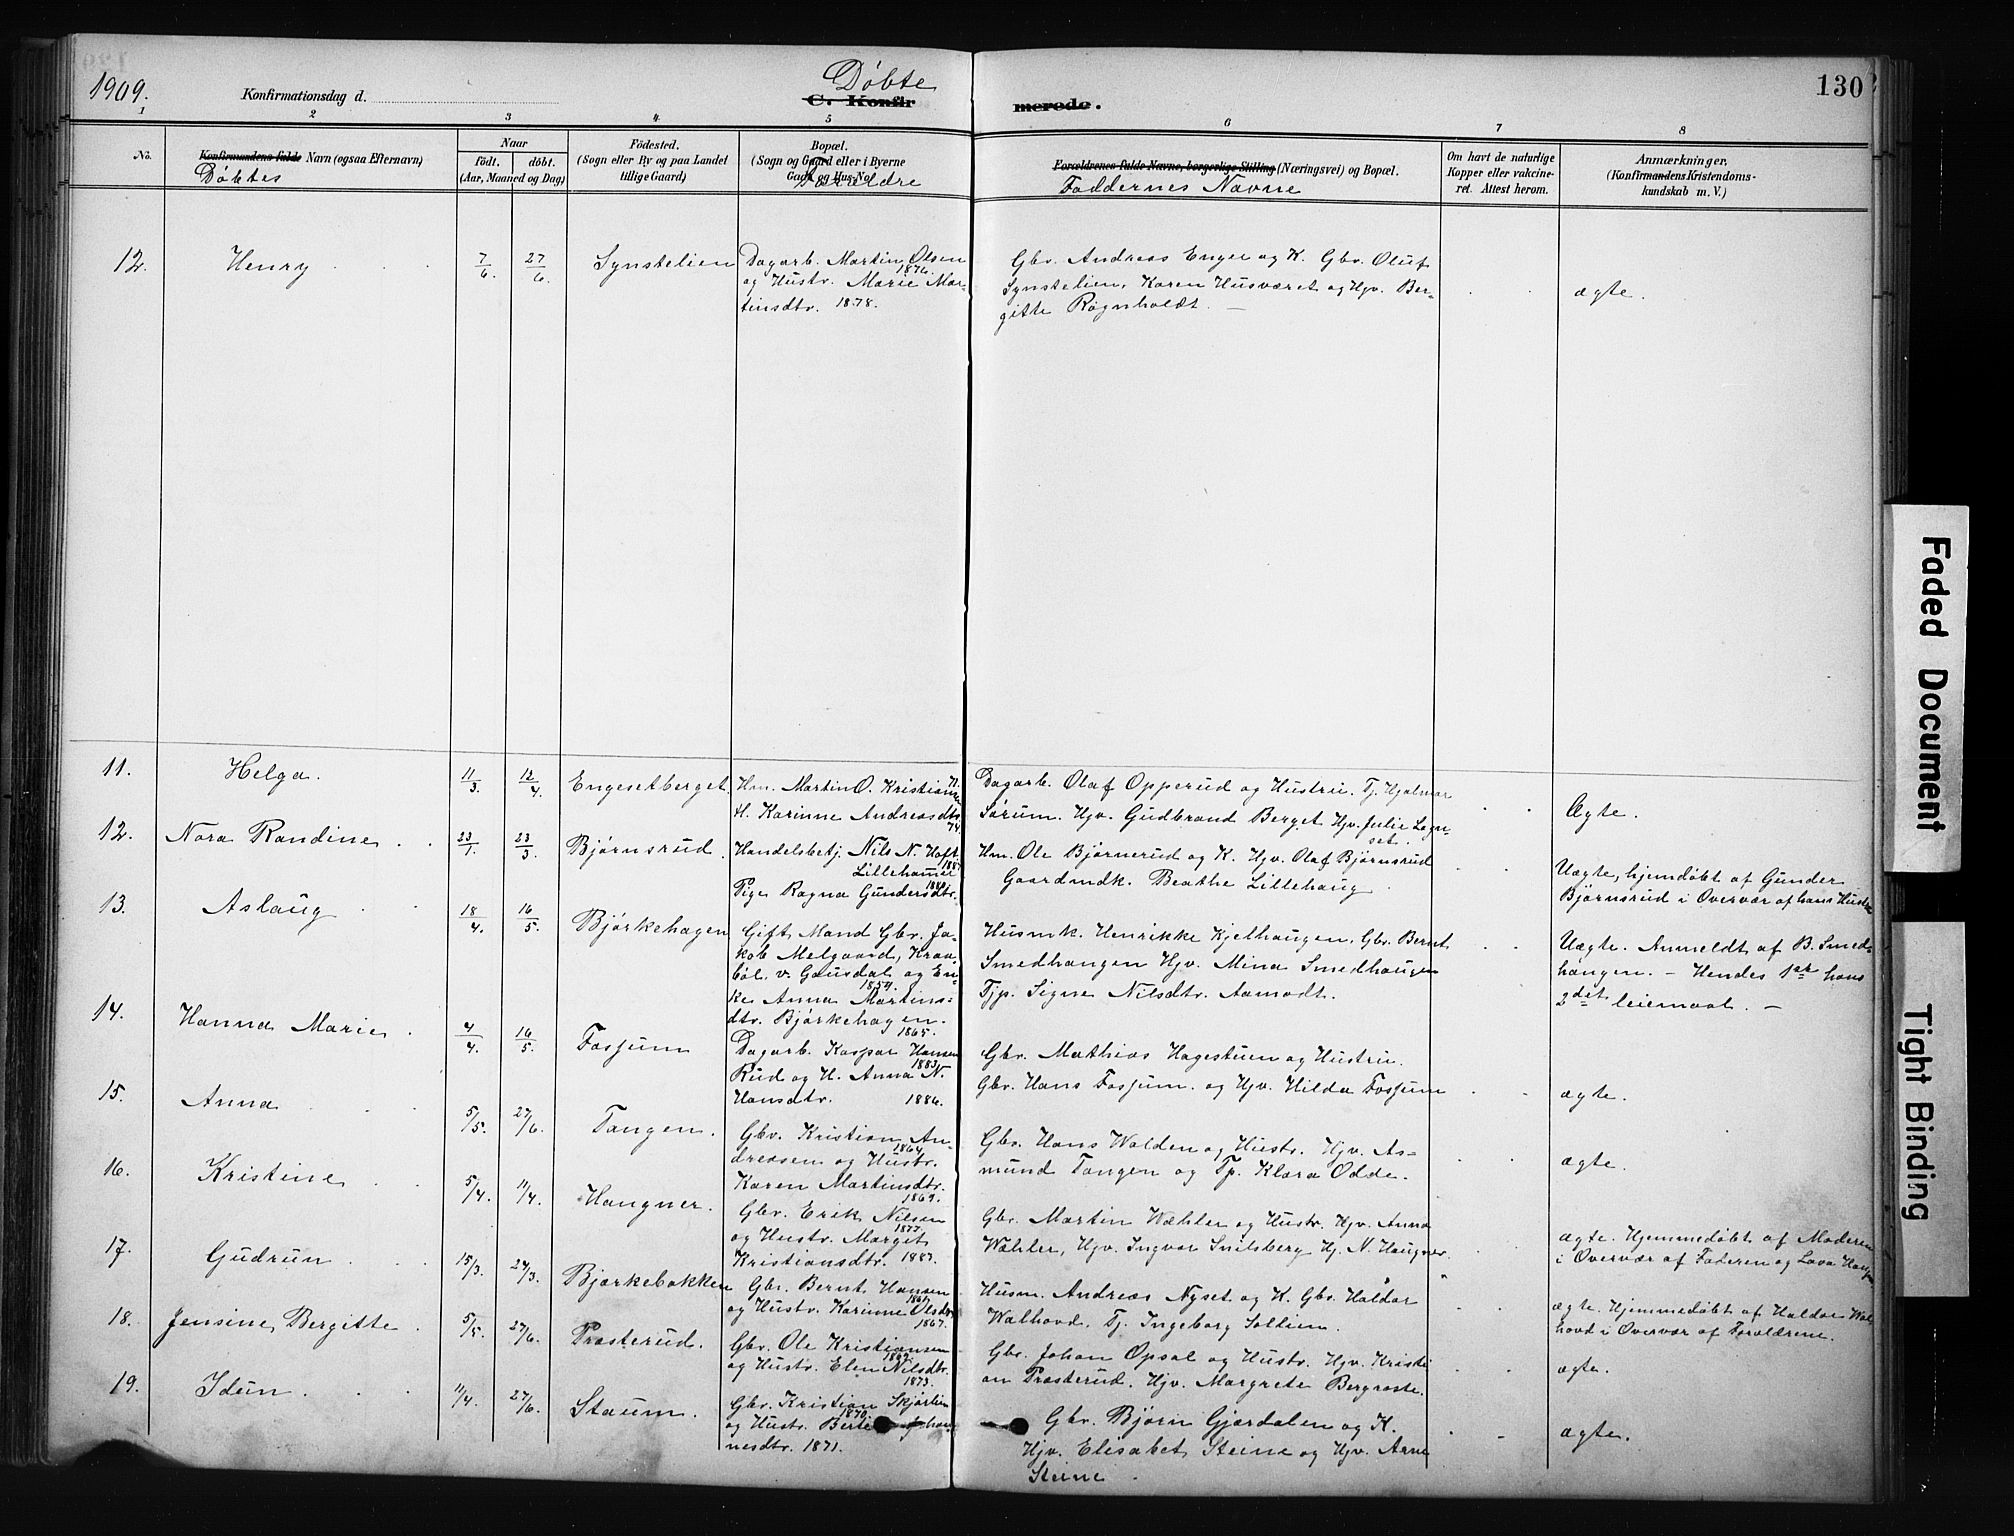 1909.
Konfirmationsdag d.
Døbte
C. Konfir
merede.
130
1
2
3
4
5
6
7
8
No.
Konfirmandens fulde Navn (ogsaa Efternavn)
Døbtes
Naar
født. døbt.
(Aar, Maaned og Dag)
Fødested.
(Sogn eller By og paa Landet
tillige Gaard)
Bopæl.
(Sogn og Gaard eller i Byerne
Gade og Hus-No.)
Forældre
Forældrenes fulde Navne, borgerlige Stilling (Næringsvei) og Bopæl.
Faddernes Navne
Om havt de naturlige
Kopper eller vakcine-
ret. Attest herom.
Anmærkninger,
(Konfirmandens Kristendoms-
kundskab m. V.)
12. Henry 7/6. 27/6. Synstelien
Dagarb. Martin Olsen
1876.
og Hustr. Marie Mar-
tinsdtr. 1878.
Gbr. Andreas Enger og K. Gbr. Oluf
Synstelien, Karen Husværet og Hjv. Ber-
gitte Røgnholdt.
ægte.
11. Helga. 11/3. 12/4. Engesetberget.
Hm. Martin O. Kristiansen
H. Karinne Andreasdtr.
74.
Dagarb. Olaf Opperud og Hustru. Tj. Hjalmar
Sørum. Hjv. Gudbrand Berget Hjv. Julie Løgn-
set.
Ægte.
12. Nora Randine 23/1. 23/3. Bjørnsrud.
Handelsbetj. Nils N. Hoft
Lillehamer
Pige Ragna Gundersdtr.
Hm. Ole Bjørnerud og K. Hjv. Olaf Bjørnsrud
Gaardmdk. Beathe Lillehaug
Uægte, hjemdøbt af Gunder
Bjørnsrud i Overvær af hans Hustru
13. Aslaug 18/4. 16/5. Bjørkehagen
Gift Mand Gbr. Ja-
kob Melgaard, Kraa-
bøl v. Gausdal og En-
1854.
ke Anna Martins-
dtr. Bjørkehagen.
1865.
Husmk. Henrikke Kjelhaugen. Gbr. Bernt
Smedhaugen Hjv. Mina Smedhaugen
Tjp. Signe Nilsdtr. Aamodt.
Uægte. Anmeldt af B. Smed-
haugen. – Hendes 1ste hans
2det leiemaal. –
14. Hanna Marie 4/4. 16/5. Fosjum
Dagarb. Kaspar Hansen
1883.
Rud og H. Anna N.
Hansdtr. 1886.
Gbr. Mathias Hagestuen og Hustru.
Gbr. Hans Fosjum. og Hjv. Hilda Fosjum
ægte.
15. Anna 5/5. 27/6. Tangen.
Gbr. Kristian An-
1864.
dreasen og Hustr.
Karen Martinsdtr.
1869.
Gbr. Hans Walden og Hustr. Hjv. As-
mund Tangen og Tp. Klara Odde.
ægte.
16. Kristine 5/4. 11/4. Haugner.
Gbr. Erik Nilsen
1877.
og Hustr. Margit
Kristiansdtr. 1887.
Gbr. Martin Wæhler og Hustr. Hjv. Anna
Wæhler, Hjv. Ingvar Snilsberg Hj. N. Haugner.
ægte. Hjemmedøbt af Moderen
i Overvær af Faderen og Lava Haugn
17. Gudrun 15/3. 27/3. Bjørkebakken
Gbr. Bernt Hansen
1867.
og Hustr. Karinne Olsdtr.
1867.
Husm. Andreas Nyset og K. Gbr. Haldor
Walhovd. Tj. Ingeborg Sollien.
ægte. Hjemmedøbt af Haldor Wal-
hovd i Overvær af Forældrene.
18. Jensine, Bergitte 5/5. 27/6. Præsterud.
Gbr. Ole Kristiansen
1869.
og Hustr. Elen Nilsdtr.
1873.
Gbr. Johan Opsal og Hustr. Hjv. Kristi
an Præsterud. Hjv. Margrete Bergroste.
ægte.
19. Idun 11/4. 27/6. Staum.
Gbr. Kristian Skjørlien
1870.
og Hustr. Berte Johan
nesdtr. 1871.
Gbr. Bjørn Gjørdalen og K.
Hjv. Elisabet Steine og Hjv. Arne
Steine
ægte.
Faded Document
Tight Binding